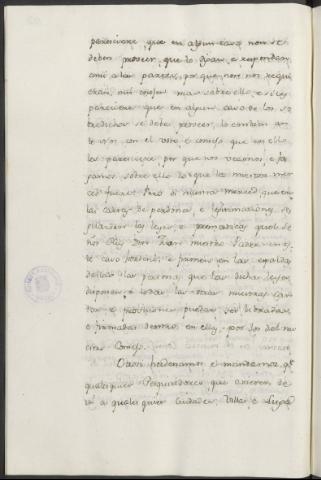 pareciere que en algun caso non se
deben proveer, que lo digan, e respondan
ansi a las partes, porque non nos requi
eran, nin enojen mas sobre ello, e si les
pareciere que en alguno caso de los so
bredichos se debe proveer, lo consulten an
te nos con el voto e consejo que en ello
les pareciere por que nos veamos e se
pamos sobre ello lo que la nuestra mer
ced fuere. Pero si nuestra merced, que en
las cartas de perdones, e legitimaciones, se
guarden las leyes, e premáticas que el Se
ñor Rey Don Juan nuestro Padre en es
te caso ordenó, e firmen en las espaldas
de las
que las dichas leyes
disponen, e todas las otras nuestras car
tas e provisiones puedan ser libradas
e firmadas dentro en ellas por los del nu
estro Consejo.
Otrosi hordenamos, e mandamos qe
qualesquier Pesquisidores que ovieren de
ir a qualesquier Ciudades, Villas e Luga